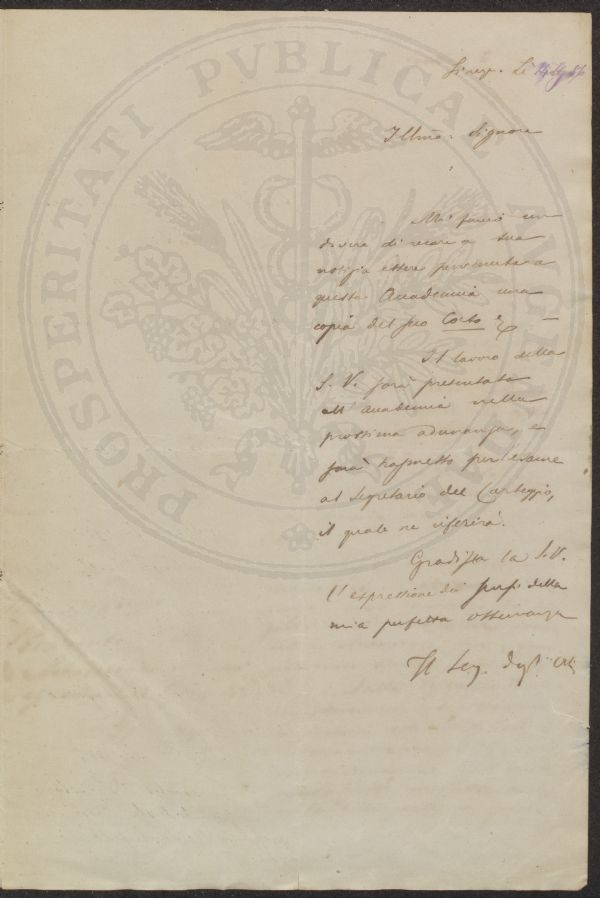 PROSPERITATI PVBLICAE AVGENDAE
Li
Illmo: Signore
Mi un
dovere di recare a sua
notizia essere pervenuta a
questa Accademia una
copia del suo
Il lavoro della
S. V. sarà presentato
all'accademia nella
prossima adunanza, e
sarà per esame
al Segretario del Carteggio,
il quale ne riferirà.
Gradisca la S. V.
l'espressione dei sensi della
mia perfetta osservanza
Il Seg. degli Atti